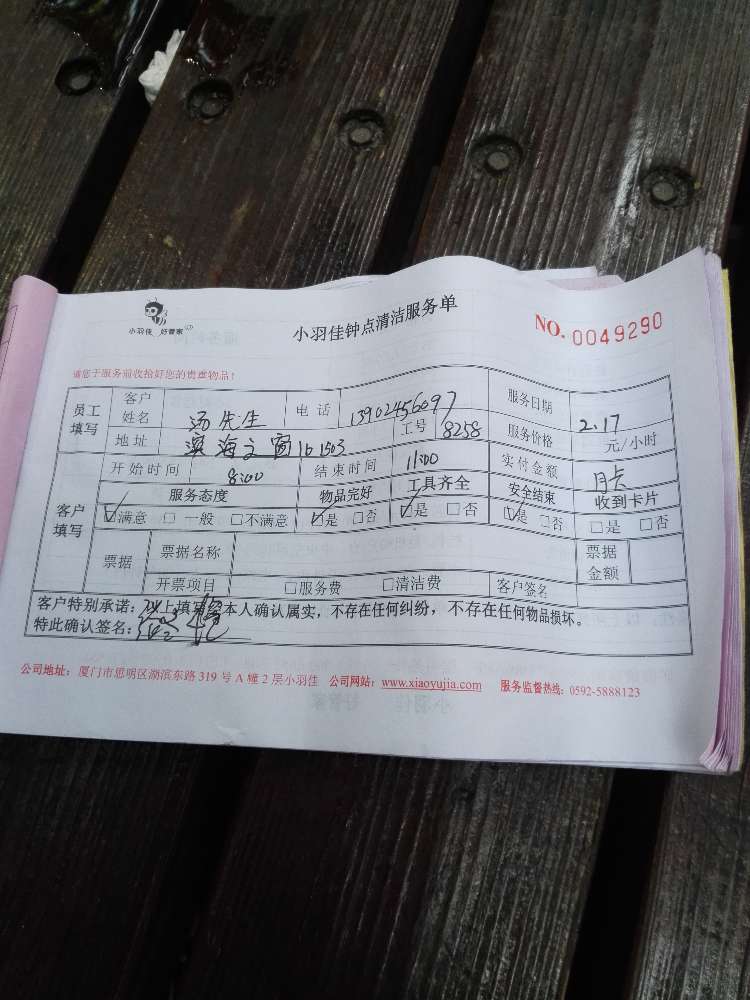 小羽佳 好管家
小羽佳钟点清洁服务单
NO. 0049290
请您于服务前收拾好您的贵重物品！
员工填写 客户姓名 汤先生 电话 13902456097 服务日期 2.17
地址 滨海之窗1b1503 工号 8258 服务价格 元/小时
客户填写 开始时间 8:00 结束时间 11:00 实付金额 月卡
服务态度 物品完好 工具齐全 安全结束 收到卡片
☑满意 □一般 □不满意 ☑是 □否 ☑是 □否 ☑是 □否 □是 □否
票据 票据名称 票据金额
开票项目 □服务费 □清洁费 客户签名
客户特别承诺：以上填写经本人确认属实，不存在任何纠纷，不存在任何物品损坏。
特此确认签名：
公司地址：厦门市思明区湖滨东路 319 号 A 幢 2 层小羽佳 公司网站：www.xiaoyujia.com 服务监督热线：0592-5888123